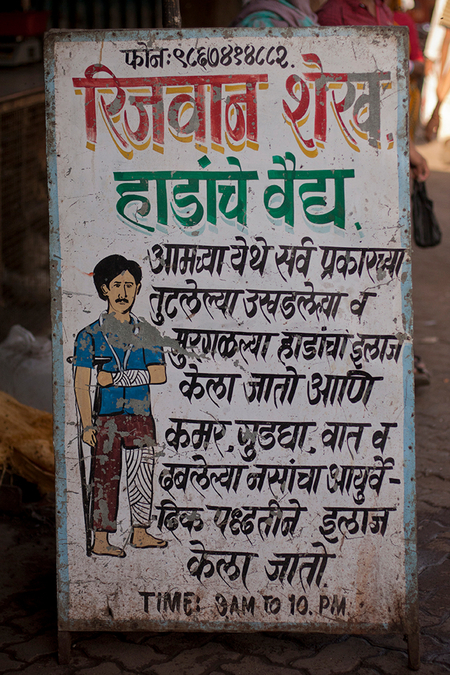 फोन: ९८६७४१४८८२.
रिजवान शेख.
हाडांचे वैद्य.
आमच्या येथे सर्व प्रकारच्या
तुटलेल्या उखडलेल्या व
मुरगळल्या हाडांचा ईलाज
केला जातो आणि
कमर, गुडघा, वात व
दबलेल्या नसांचा आयुर्वे-
दिक पध्दतीने ईलाज
केला जातो.
TIME: 9AM TO 10. PM